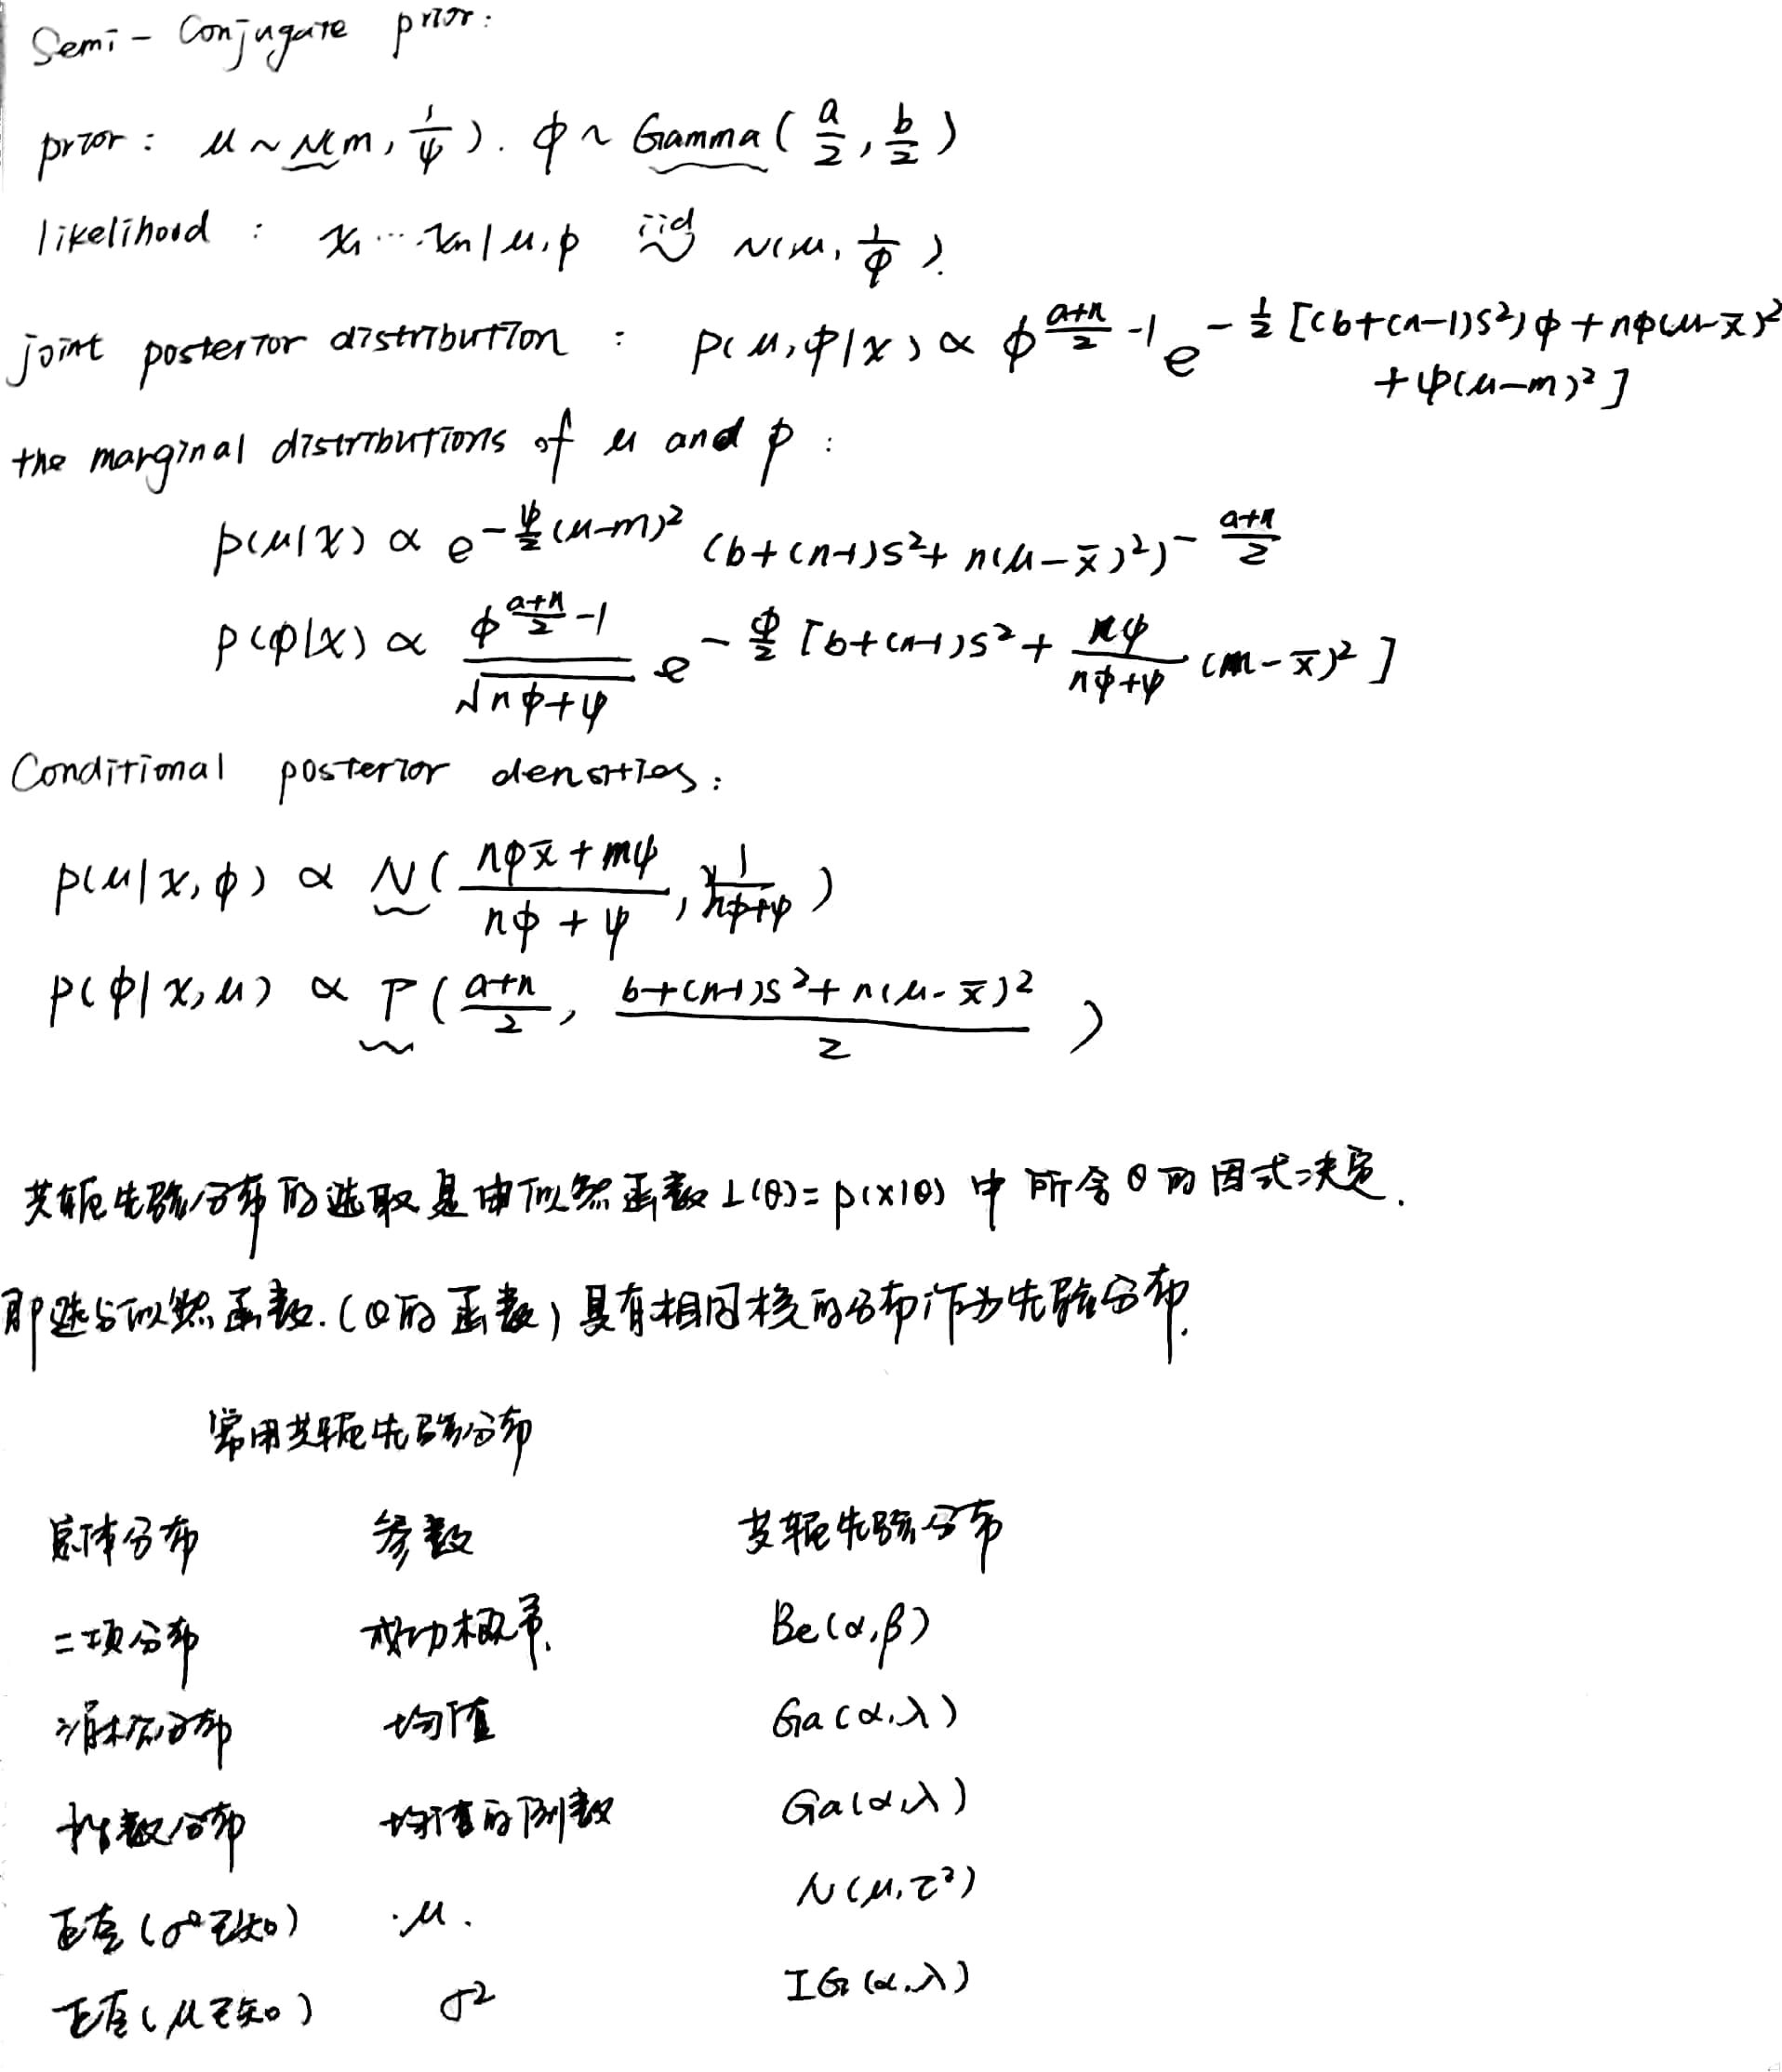 Semi-Conjugate prior:
prior: μ ~ N(m, 1/ψ). φ ~ Gamma(a/2, b/2)
likelihood: x₁...xₙ|μ,φ iid ~ N(μ, 1/φ).
joint posterior distribution: p(μ,φ|x) ∝ φ^{(a+n)/2 -1} e^{-1/2 [(b+(n-1)s²)φ + nφ(μ-x̄)²
+ψ(μ-m)²]}
the marginal distributions of μ and φ:
p(μ|x) ∝ e^{-ψ/2 (μ-m)²} (b+(n-1)s²+n(μ-x̄)²)^{-(a+n)/2}
p(φ|x) ∝ φ^{(a+n)/2 -1}/√(nφ+ψ) e^{-φ/2 [b+(n-1)s²+ nψ/(nφ+ψ) (m-x̄)²]}
Conditional posterior densities:
p(μ|x,φ) ∝ N( (nφx̄+mψ)/(nφ+ψ), 1/(nφ+ψ) )
p(φ|x,μ) ∝ Γ( (a+n)/2, (b+(n-1)s²+n(μ-x̄)²)/2 )
共轭先验分布的选取是由似然函数 L(θ)=p(x|θ) 中所含θ的因式决定.
即选与似然函数.(θ的函数)具有相同核的分布作为先验分布.
常用共轭先验分布
总体分布 参数 共轭先验分布
二项分布 成功概率 Be(α,β)
泊松分布 均值 Ga(α,λ)
指数分布 均值的倒数 Ga(α,λ)
正态(σ²已知) μ. N(μ,τ²)
正态(μ已知) σ² IGa(α,λ)